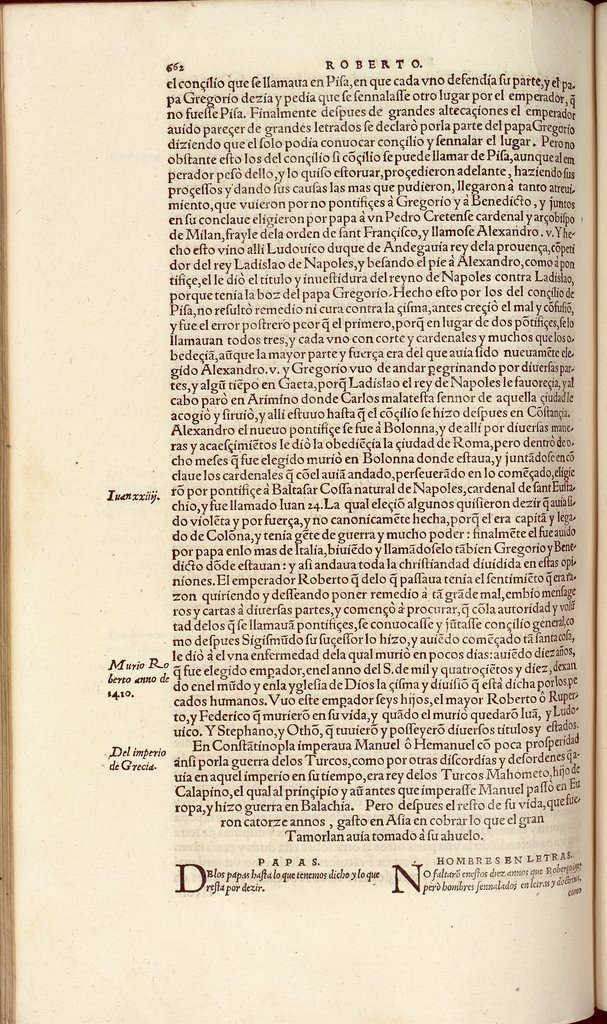 662
ROBERTO.
el conçilio que se llamaua en Pisa, en que cada vno defendia su parte, y el pa-
pa Gregorio dezia y pedia que se sennalasse otro lugar por el emperador, q̃
no fuesse Pisa. Finalmente despues de grandes altecaçiones el emperador
auido pareçer de grandes letrados se declarò por la parte del papa Gregorio
diziendo que el solo podia conuocar conçilio y sennalar el lugar. Pero no
obstante esto los del conçilio si cõçilio se puede llamar de Pisa, aunque al em
perador pesò dello, y lo quiso estoruar, proçedieron adelante, haziendo sus
proçessos y dando sus causas las mas que pudieron, llegaron à tanto atreui-
miento, que vuieron por no pontifiçes à Gregorio y à Benedicto, y juntos
en su conclaue eligieron por papa à vn Pedro Cretense cardenal y arçobispo
de Milan, frayle de la orden de sant Françisco, y llamose Alexandro. v. Y he-
cho esto vino alli Ludouico duque de Andegauia rey de la prouença, cõpeti
dor del rey Ladislao de Napoles, y besando el pie à Alexandro, como à pon
tifiçe, el le diò el titulo y inuestidura del reyno de Napoles contra Ladislao,
porque tenia la boz del papa Gregorio. Hecho esto por los del conçilio de
Pisa, no resultò remedio ni cura contra la çisma, antes creçiò el mal y cõfusiõ,
y fue el error postrero peor q̃ el primero, porq̃ en lugar de dos põtifiçes, se lo
llamauan todos tres, y cada vno con corte y cardenales y muchos que los o-
bedeçiã, aũque la mayor parte y fuerça era del que auia sido nueuamẽte ele-
gido Alexandro. v. y Gregorio vuo de andar pegrinando por diuersas par-
tes, y algũ tiẽpo en Gaeta, porq̃ Ladislao el rey de Napoles le fauoreçia, y al
cabo parò en Arimino donde Carlos malatesta sennor de aquella çiudad le
acogiò y siruiò, y alli estuuo hasta q̃ el cõçilio se hizo despues en Cõstançia.
Alexandro el nueuo pontifiçe se fue à Bolonna, y de alli por diuersas mane-
ras y acaesçimiẽtos le diò la obediẽçia la çiudad de Roma, pero dentro de o-
cho meses q̃ fue elegido muriò en Bolonna donde estaua, y juntãdose en cõ
claue los cardenales q̃ cõel auiã andado, perseuerãdo en lo comẽçado, eligie
Iuan xxiiij.
rõ por pontifiçe à Baltasar Cossa natural de Napoles, cardenal de sant Eusta-
chio, y fue llamado Iuan 24. La qual eleçiõ algunos quisieron dezir q̃ auia si-
do violẽta y por fuerça, y no canonicamẽte hecha, porq̃ el era capitã y lega-
do de Colõna, y tenia gẽte de guerra y mucho poder: finalmẽte el fue auido
por papa en lo mas de Italia, biuiẽdo y llamãdoselo tãbien Gregorio y Bene
dicto dõde estauan: y asi andaua toda la christiandad diuidida en estas opi-
niones. El emperador Roberto q̃ delo q̃ passaua tenia el sentimiẽto q̃ era ra-
zon quiriendo y desseando poner remedio à tã grãde mal, embio mensage
ros y cartas à diuersas partes, y començò à procurar, q̃ cõ la autoridad y volũ
tad delos q̃ se llamauã pontifiçes, se conuocasse y jũtasse conçilio general, co
mo despues Sigismũdo su suçessor lo hizo, y auiẽdo comẽçado tã santa cosa,
le diò à el vna enfermedad dela qual muriò en pocos dias: auiẽdo diez años,
Murio Ro
berto anno de
1410.
q̃ fue elegido empador, en el anno del S. de mil y quatroçiẽtos y diez, dexan
do en el mũdo y en la yglesia de Dios la çisma y diuisiõ q̃ està dicha por los pe
cados humanos. Vuo este empador seys hijos, el mayor Roberto ò Ruper-
to, y Federico q̃ murierõ en su vida, y quãdo el murio quedarõ luã, y Ludo-
uico. Y Stephano, y Othõ, q̃ tuuierõ y posseyerõ diuersos titulos y estados.
Del imperio
de Grecia.
En Constãtinopla imperaua Manuel ô Hemanuel cõ poca prosperidad
ànsi por la guerra delos Turcos, como por otras discordias y desordenes q̃ a-
uia en aquel imperio en su tiempo, era rey delos Turcos Mahometo, hijo de
Calapino, el qual al prinçipio y aũ antes que imperasse Manuel passò en Eu
ropa, y hizo guerra en Balachia. Pero despues el resto de su vida, que fue-
ron catorze annos, gasto en Asia en cobrar lo que el gran
Tamorlan auia tomado à su ahuelo.
PAPAS.
DElos papas hasta lo que tenemos dicho y lo que
resta por dezir.
HOMBRES EN LETRAS.
NO faltarõ enestos diez annos que Roberto
però hombres sennalados en letras y doctrina,
como